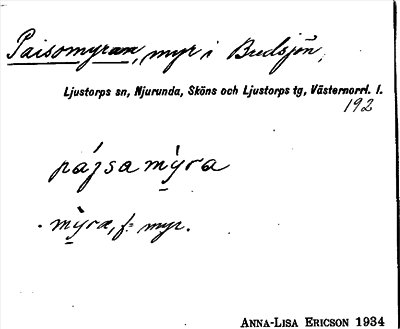 Paisomyran, myr i Budsjön,
Ljustorps sn, Njurunda, Sköns och Ljustorps tg, Västernorrl. l.
192
pájsa mỳra
mỳra, f = myr.
ANNA-LISA ERICSON 1934